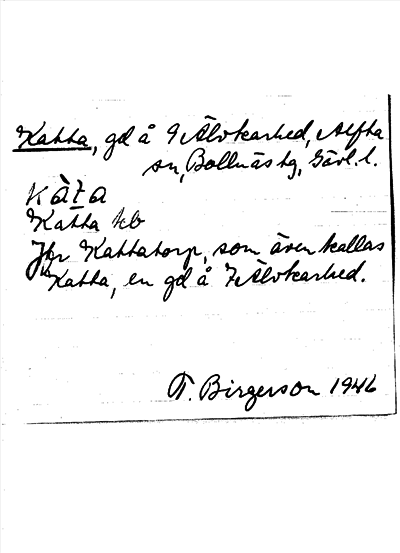 Katta, gd å 9 Älvkarhed, Alfta
sn, Bollnäs tg, Gävl. l.
kàt̄a
Katta kb
Jfr Kattatorp, som även kallas
Katta, en gd å 7 Älvkarhed.
T. Birgerson 1946